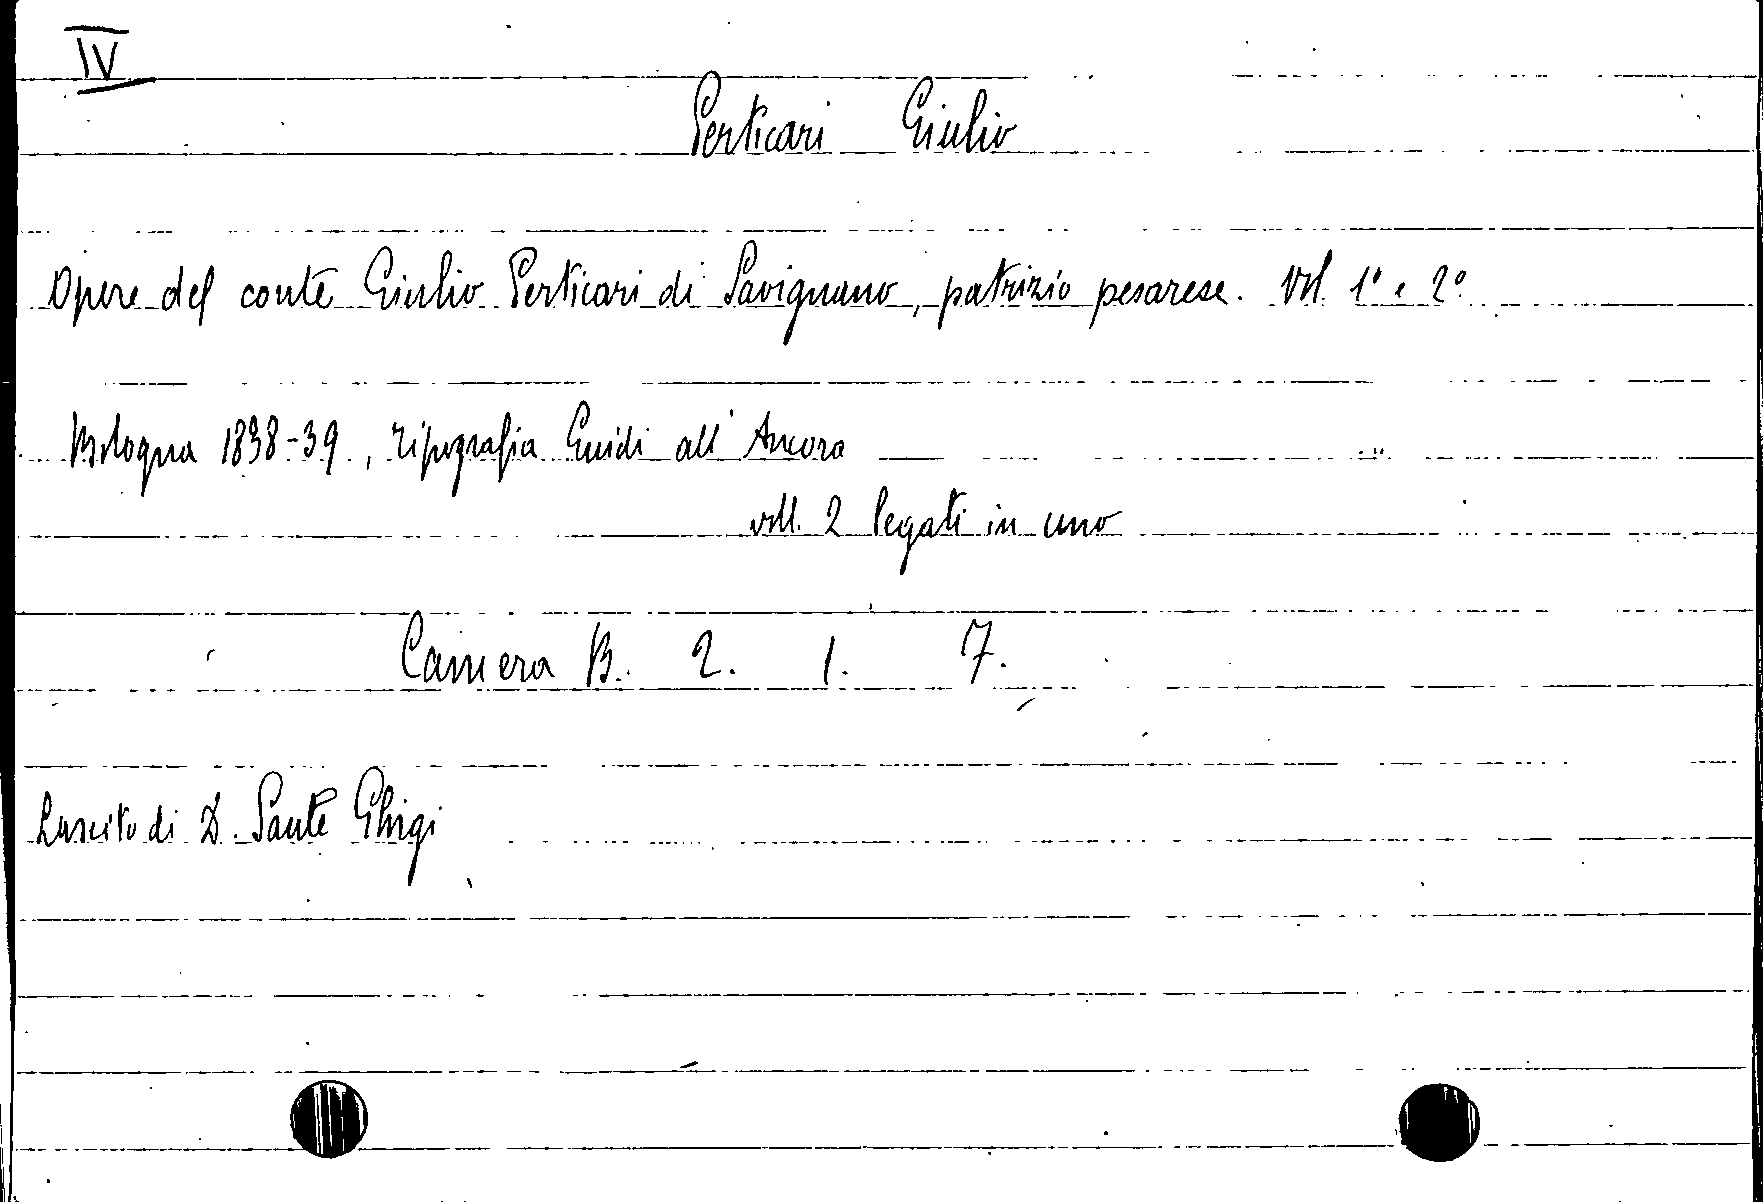 IV
Perticari Giulio
Opere del conte Giulio Perticari di Savignano, patrizio pesarese. Vol. 1º e 2º
Bologna 1838-39, tipografia Guidi all'Ancora
voll. 2 legati in uno
Camera B. 2. 1. 7.
Lascito di D. Sante Ghigi